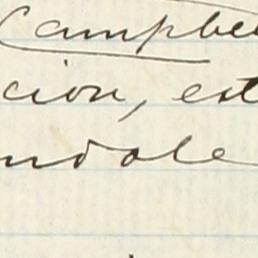 Campbe
cion, est
ndole